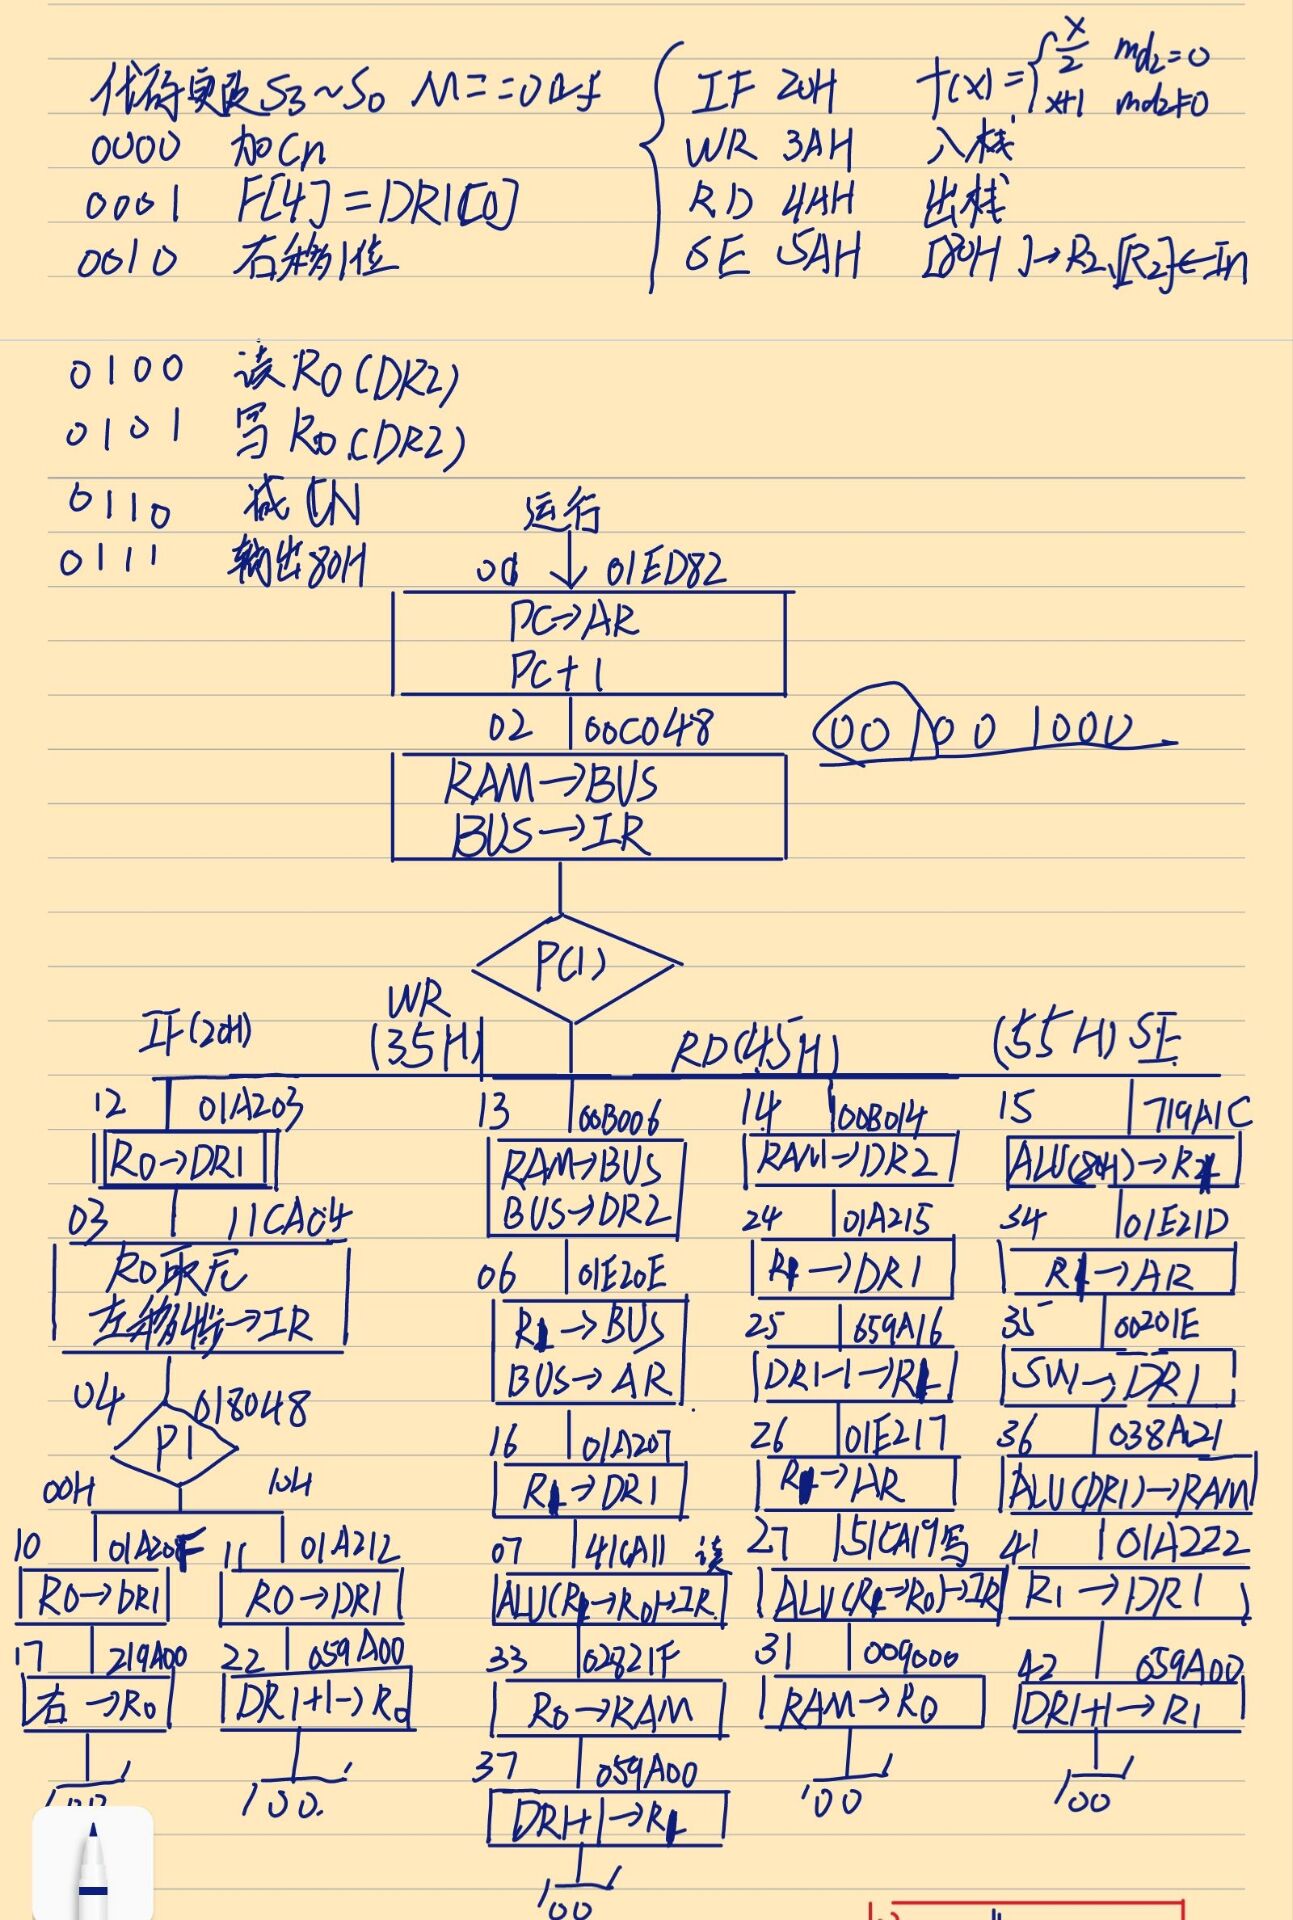 代码更改S3~S0 M==0时
0000 加Cn
0001 F[4]=DR1[0]
0010 右移1位
IF 20H f(x)={x/2 md2=0
x+1 md2≠0
WR 3AH 入栈
RD 4AH 出栈
SE 5AH [80H]→R2,[R2]←In
0100 读R0(DR2)
0101 写R0(DR2)
0110 减CN
0111 输出80H
运行
00 01ED82
PC→AR
PC+1
02 00C048
00100 1000
RAM→BUS
BUS→IR
P(1)
IF(20H)
WR
(35H)
RD(45H)
(55H) SE
12 01A203
R0→DR1
03 11CA04
R0取冗
左移4步→IR
04 018048
P1
00H 10H
10 01A20F
R0→DR1
17 219A00
右→R0
100
11 01A212
R0→DR1
22 059A00
DR1+1→R0
100.
13 00B006
RAM→BUS
BUS→DR2
06 01E20E
R1→BUS
BUS→AR
16 01A207
R1→DR1
07 41CA11 读
ALU(R1→R0)→IR
33 02821F
R0→RAM
37 059A00
DR1+1→R1
100
14 00B014
RAM→DR2
24 01A215
R1→DR1
25 659A16
DR1-1→R1
26 01E217
R1→AR
27 51CA19写
ALU(R1→R0)→IR
31 009000
RAM→R0
100
15 719A1C
ALU(80H)→R1
34 01E21D
R1→AR
35 00201E
SW→DR1
36 038A21
ALU(DR1)→RAM
41 01A222
R1→DR1
42 059A00
DR1+1→R1
100